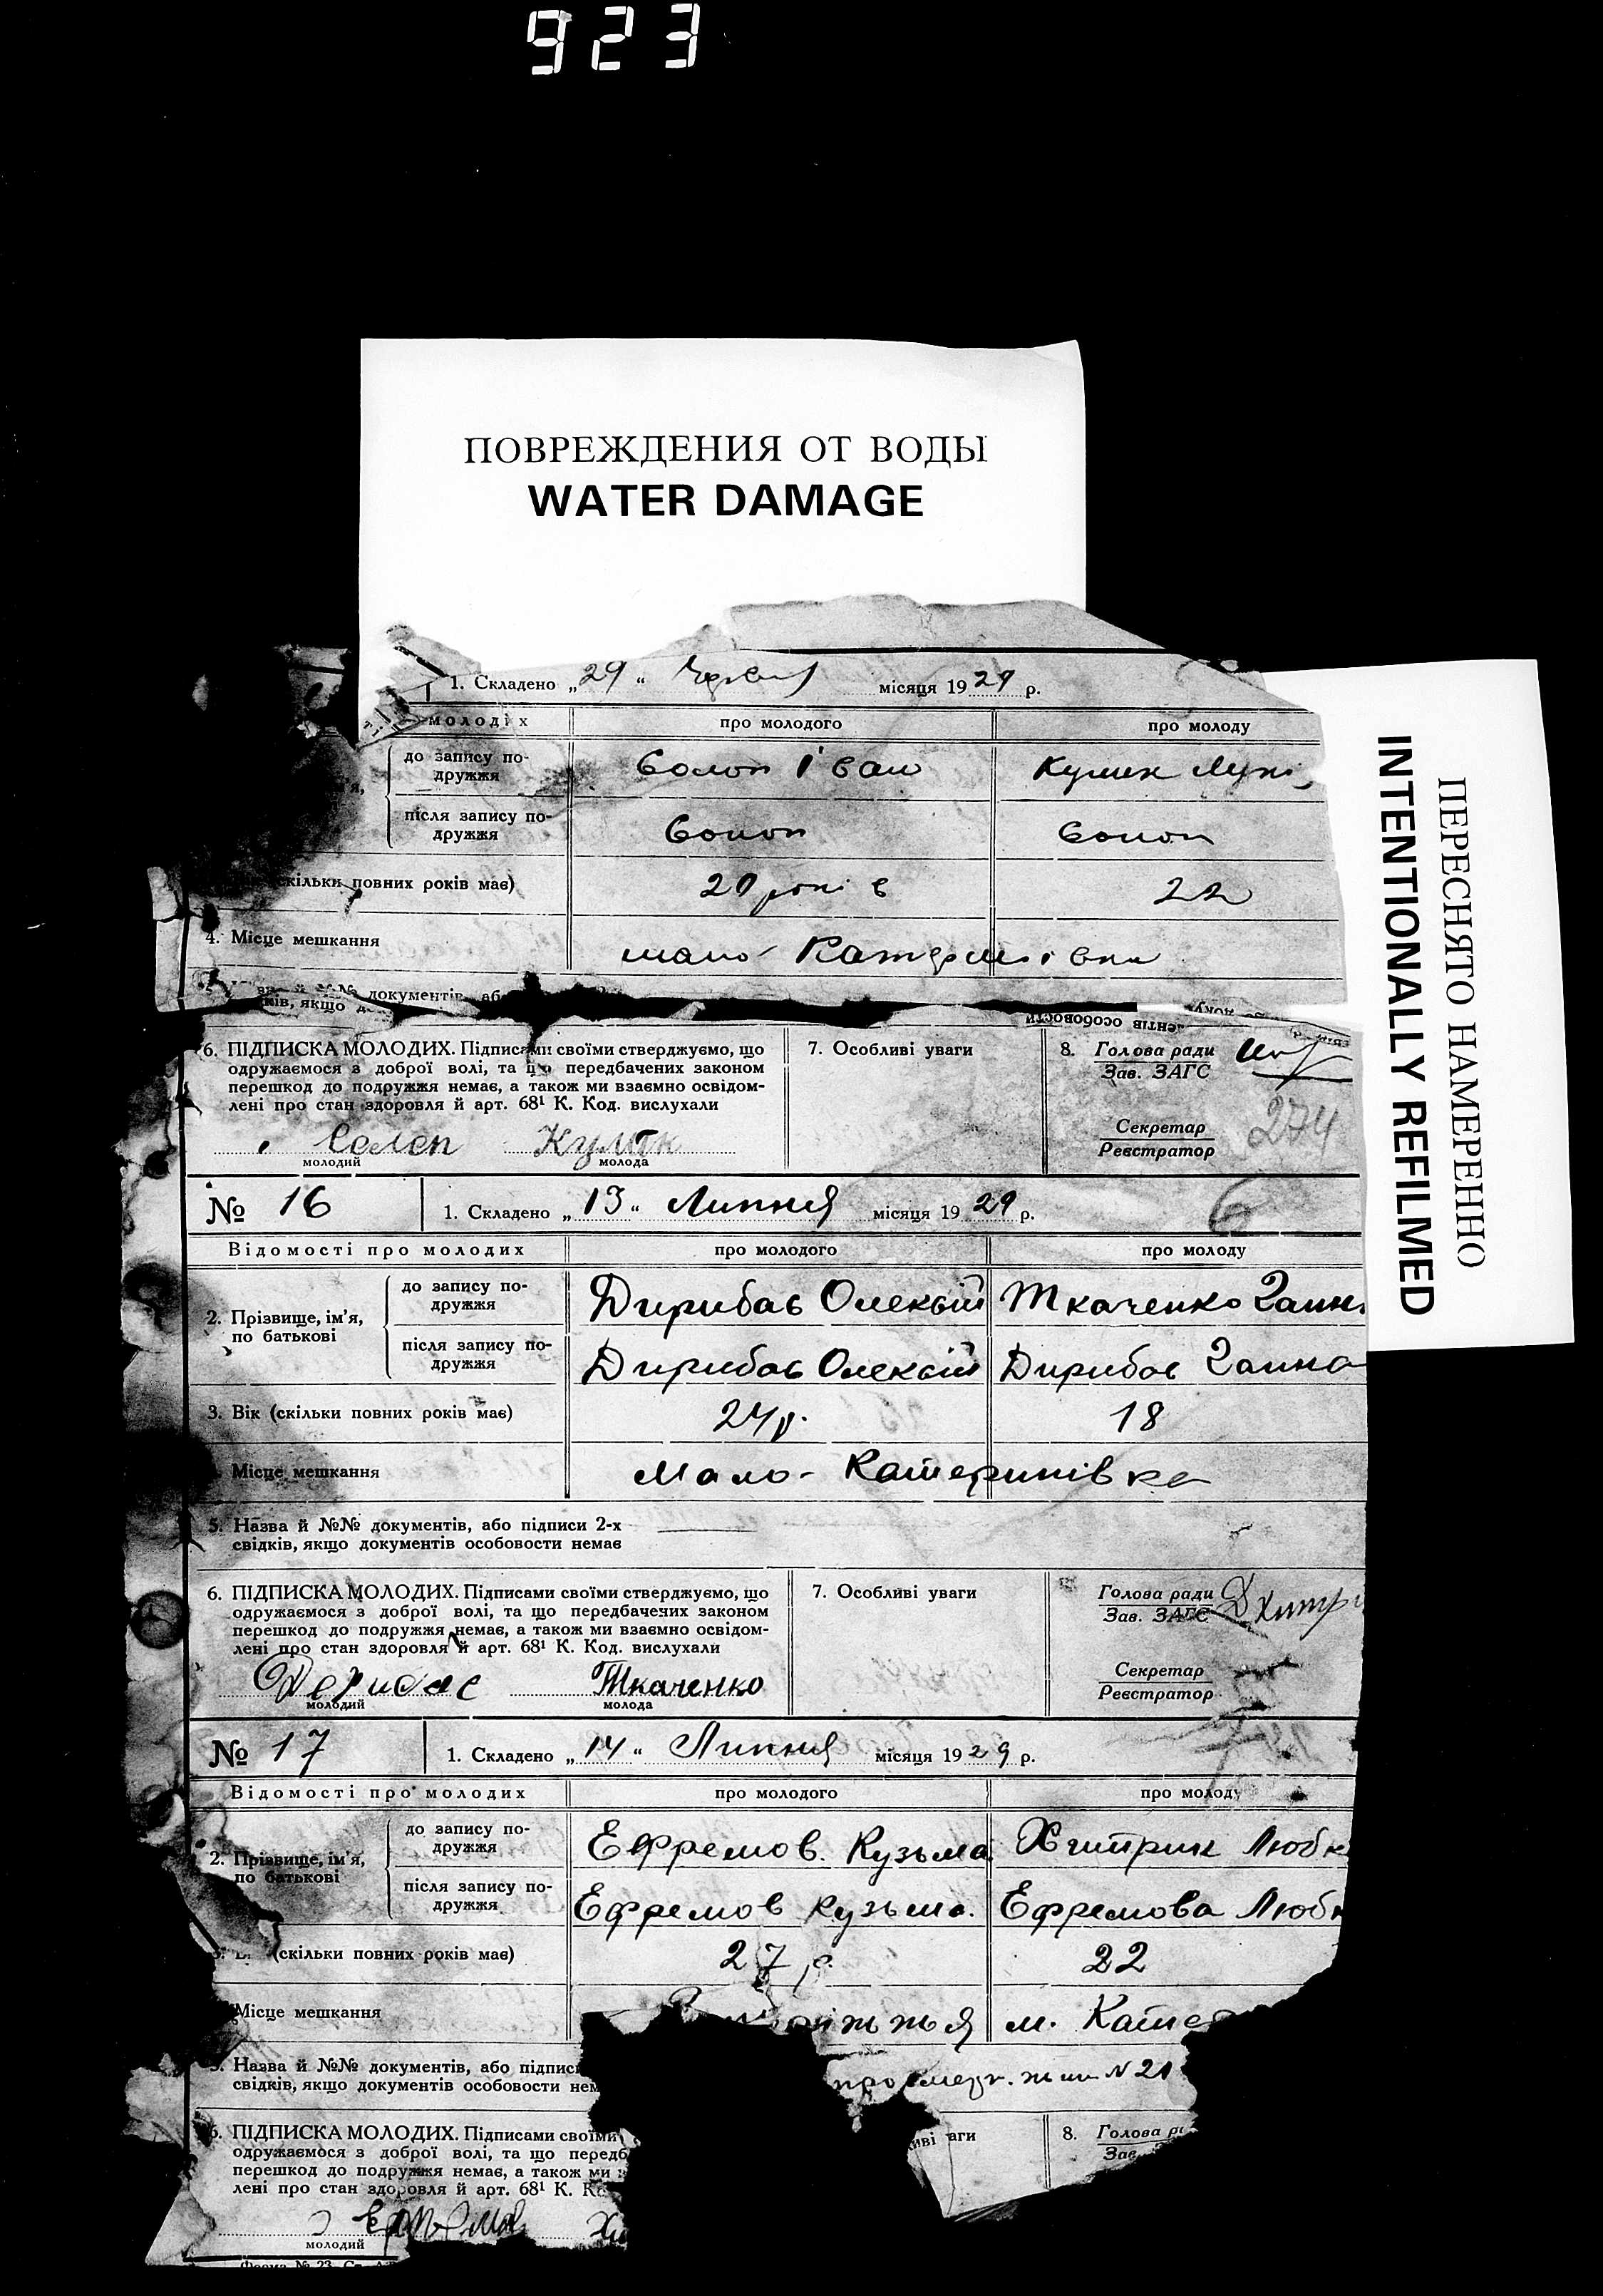 923
ПОВРЕЖДЕНИЯ ОТ ВОДЫ
WATER DAMAGE
ПЕРЕСНЯТО НАМЕРЕННО
INTENTIONALLY REFILMED
1. Складено „29“ Червня місяця 1929 р.
молодих про молодого про молоду
до запису по-
дружжя Солоп Іван Кулик
після запису по-
дружжя Солоп Солоп
скільки повних років має) 20 років 22
4. Місце мешкання мало-Катеринівка
документів, аб
ків, якщо
6. ПІДПИСКА МОЛОДИХ. Підписами своїми стверджуємо, що
одружаємося з доброї волі, та що передбачених законом
перешкод до подружжя немає, а також ми взаємно освідом-
лені про стан здоровля й арт. 68¹ К. Код. вислухали
Солоп Кулик
молодий молода
7. Особливі уваги
8. Голова ради
Зав. ЗАГС
Секретар
Реєстратор
274
№ 16 1. Складено „13“ Липня місяця 1929 р. 6
Відомості про молодих про молодого про молоду
2. Прізвище, ім'я,
по батькові
до запису по-
дружжя Дирибас Олексій Ткаченко Ганн
після запису по-
дружжя Дирибас Олексій Дирибас Ганна
3. Вік (скільки повних років має) 24 р. 18
Місце мешкання Мало-Катеринівка
5. Назва й №№ документів, або підписи 2-х
свідків, якщо документів особовости немає
6. ПІДПИСКА МОЛОДИХ. Підписами своїми стверджуємо, що
одружаємося з доброї волі, та що передбачених законом
перешкод до подружжя немає, а також ми взаємно освідом-
лені про стан здоровля й арт. 68¹ К. Код. вислухали
Дерибас Ткаченко
молодий молода
7. Особливі уваги
Голова ради
Зав. ЗАГС
Секретар
Реєстратор
№ 17 1. Складено „14“ Липня місяця 1929 р.
Відомості про молодих про молодого про молоду
2. Прізвище, ім'я,
по батькові
до запису по-
дружжя Ефремов. Кузьма Хитрик Любк
після запису по-
дружжя Ефремов Кузьма. Ефремова Любк
(скільки повних років має) 27 р. 22
Місце мешкання ріжжья м. Кате
5. Назва й №№ документів, або підпис
свідків, якщо документів особовости нем
N 21
6. ПІДПИСКА МОЛОДИХ. Підписами своїми
одружаємося з доброї волі, та що передб
перешкод до подружжя немає, а також ми
лені про стан здоровля й арт. 68¹ К. К
молодий
иві уваги
8. Голова р
Зав.
Форма № 23